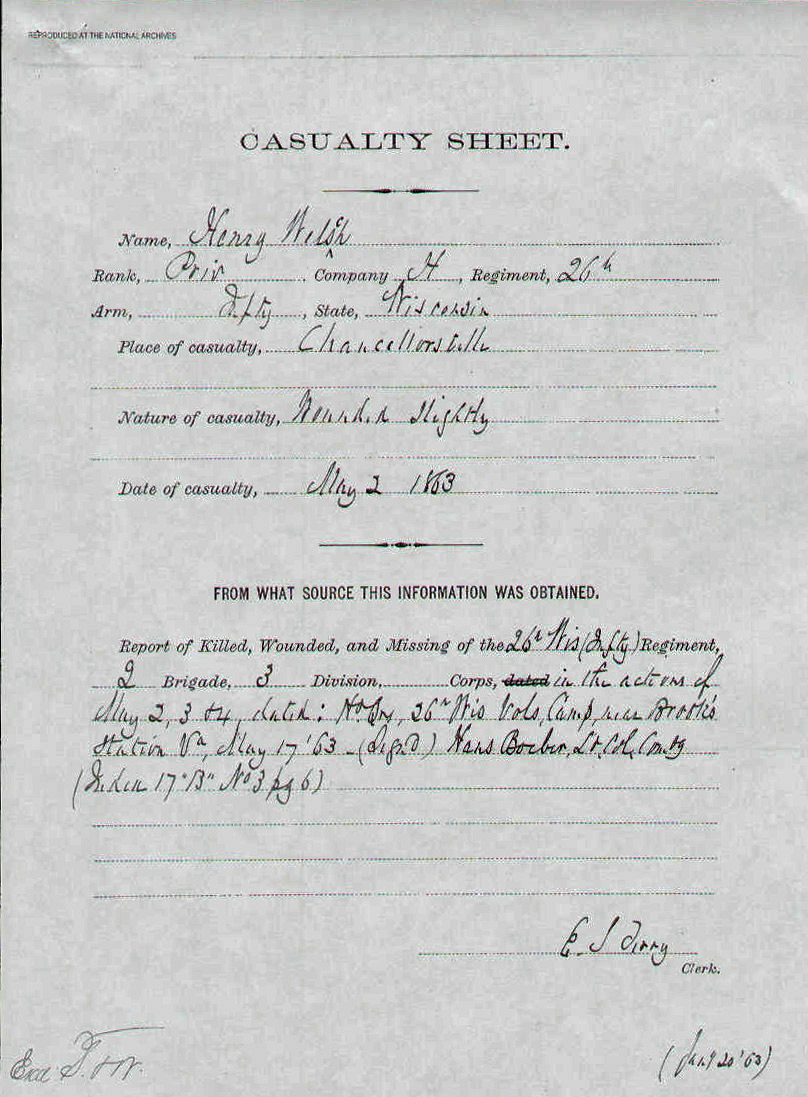 REPRODUCED AT THE NATIONAL ARCHIVES
CASUALTY SHEET.
Name, Henry Welsch
Rank, Priv. Company H, Regiment, 26th
Arm, Infty, State, Wisconsin
Place of casualty, Chancellorsville
Nature of casualty, Wounded slightly
Date of casualty, May 2 1863
FROM WHAT SOURCE THIS INFORMATION WAS OBTAINED.
Report of Killed, Wounded, and Missing of the 26th Wis (Infty) Regiment,
2 Brigade, 3 Division, Corps, dated in the actions of
May 2, 3 &4, dated: Hd Qrs, 26th Wis Vols, Camp near Brooks
Station Va, May 17 '63 - (Sign'd) Hans Boebel, Lt. Col, Comdg
17 "B" No 3 pg 6)
E. S
Clerk.
20 '63)